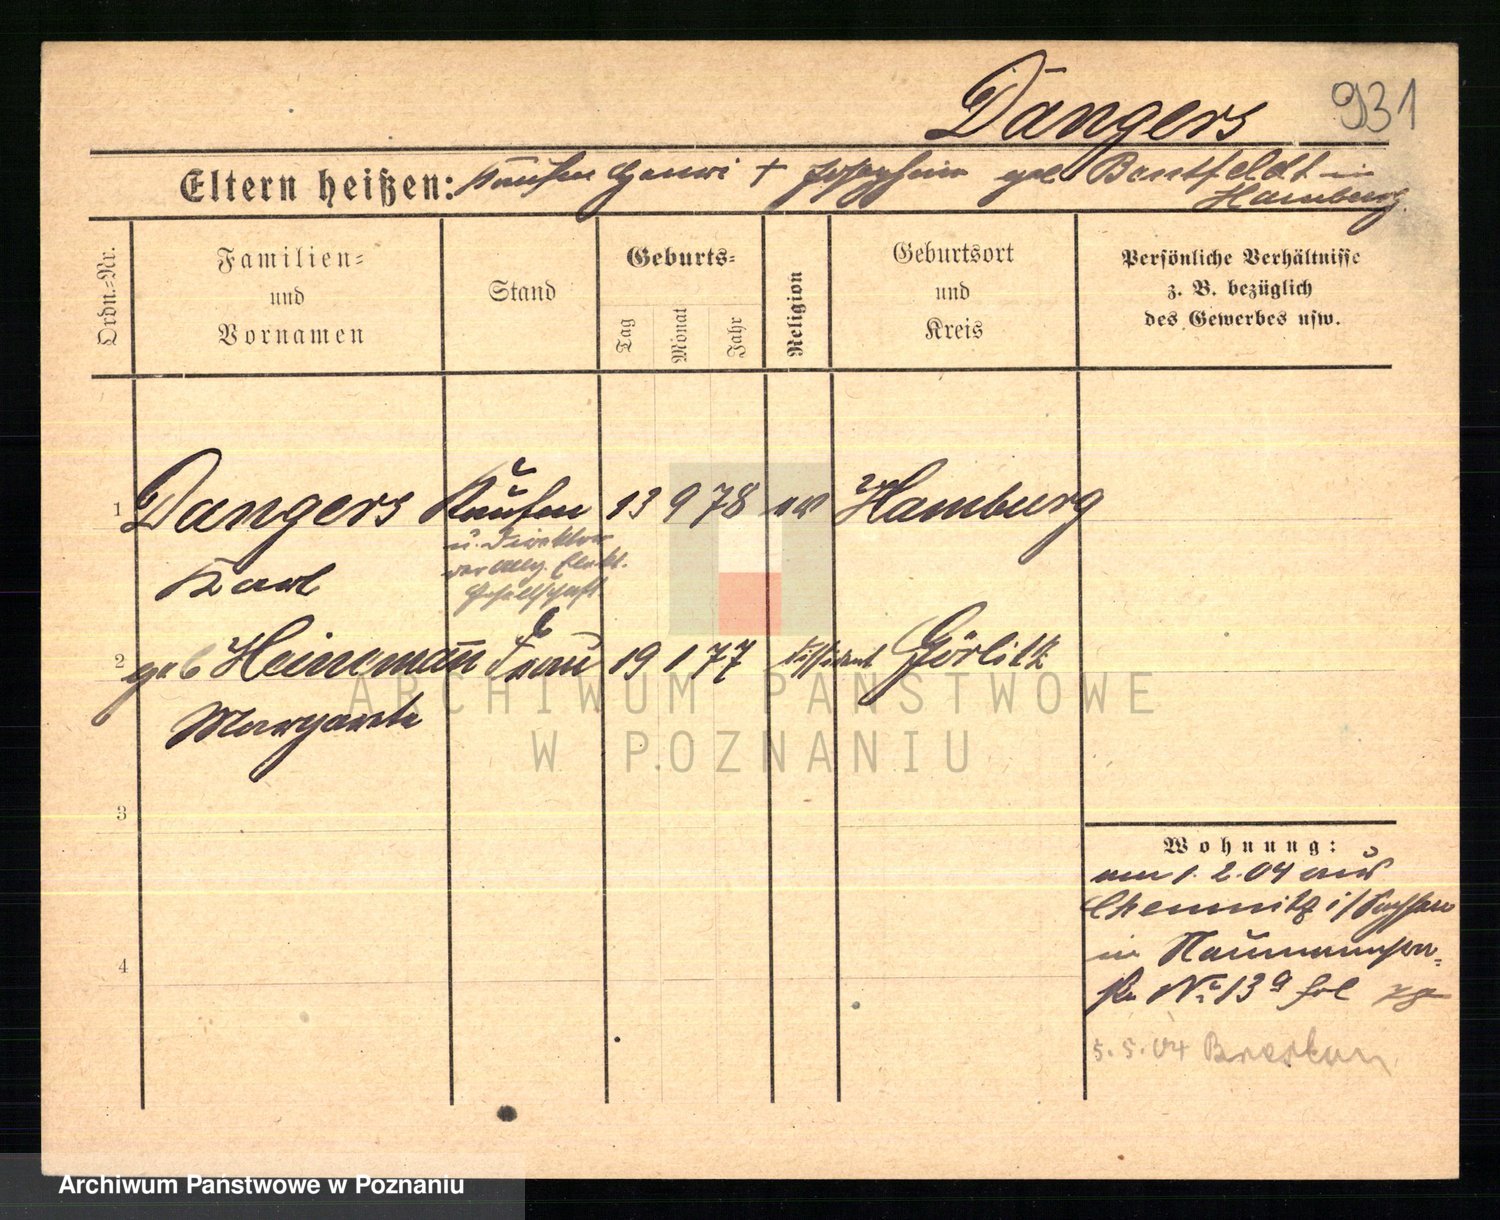 Dangers 931
Eltern heißen: Kaufm Henri † Josephine geb Bontfeldt in
Hamburg
Ordn.-Nr.
Familien-
und
Vornamen
Stand
Geburts-
Tag
Monat
Jahr
Religion
Geburtsort
und
Kreis
Persönliche Verhältnisse
z. B. bezüglich
des Gewerbes usw.
1 Dangers Kaufm 13 9 78 ev Hamburg
u. Direktor
der Allg. Elekt.
Gesellschaft
Karl
2 geb Heinemann Frau 19 1 77 Dissident Görlitz
Margarete
3
4
Wohnung:
am 1. 2. 04 aus
Chemnitz i/Sachsen
in Naumannstra-
ße No 13a
5. 5. 04 Breslau
ARCHIWUM PAŃSTWOWE
W POZNANIU
Archiwum Państwowe w Poznaniu